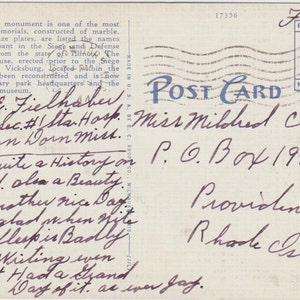 17336
monument is one of the most
emorials, constructed of marble.
nze plates, are listed the names
pant in the Siege and Defense
from the state of Illinois. The
ouse, erected prior to the Siege
Vicksburg, located within the
been reconstructed and is now
ary park headquarters and the
museum.
POST CARD
E. Fielhaber
Sta. Hosp.
an Dorn Miss.
quite a History on
also a Beauty.
nother nice Day
glad when nite
Sleep is Badly
even
Had a Grand
Day of it. as ever Jay.
Miss Mildred C
P. O. Box 19
Providen
Rhode Is